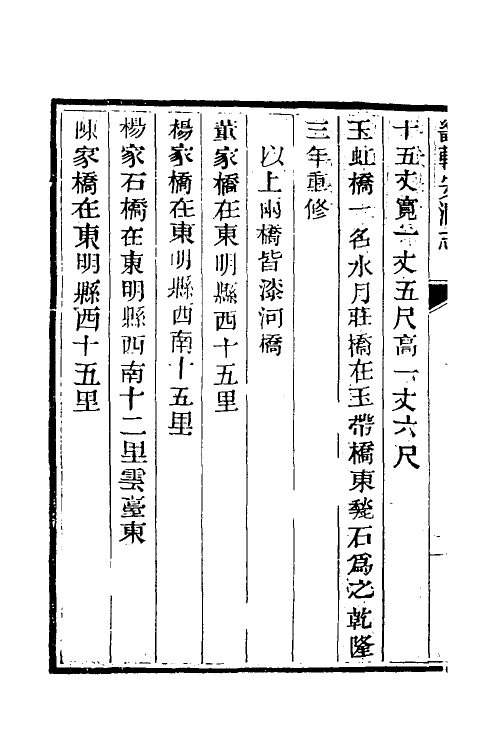 畿輔安瀾志
十五丈寬一丈五尺高一丈六尺
玉虹橋一名水月莊橋在玉帶橋東甃石爲之乾隆
三年重修
以上兩橋皆漆河橋
董家橋在東明縣西十五里
楊家橋在東明縣西南十五里
楊家石橋在東明縣西南十二里雲臺東
陳家橋在東明縣西十五里